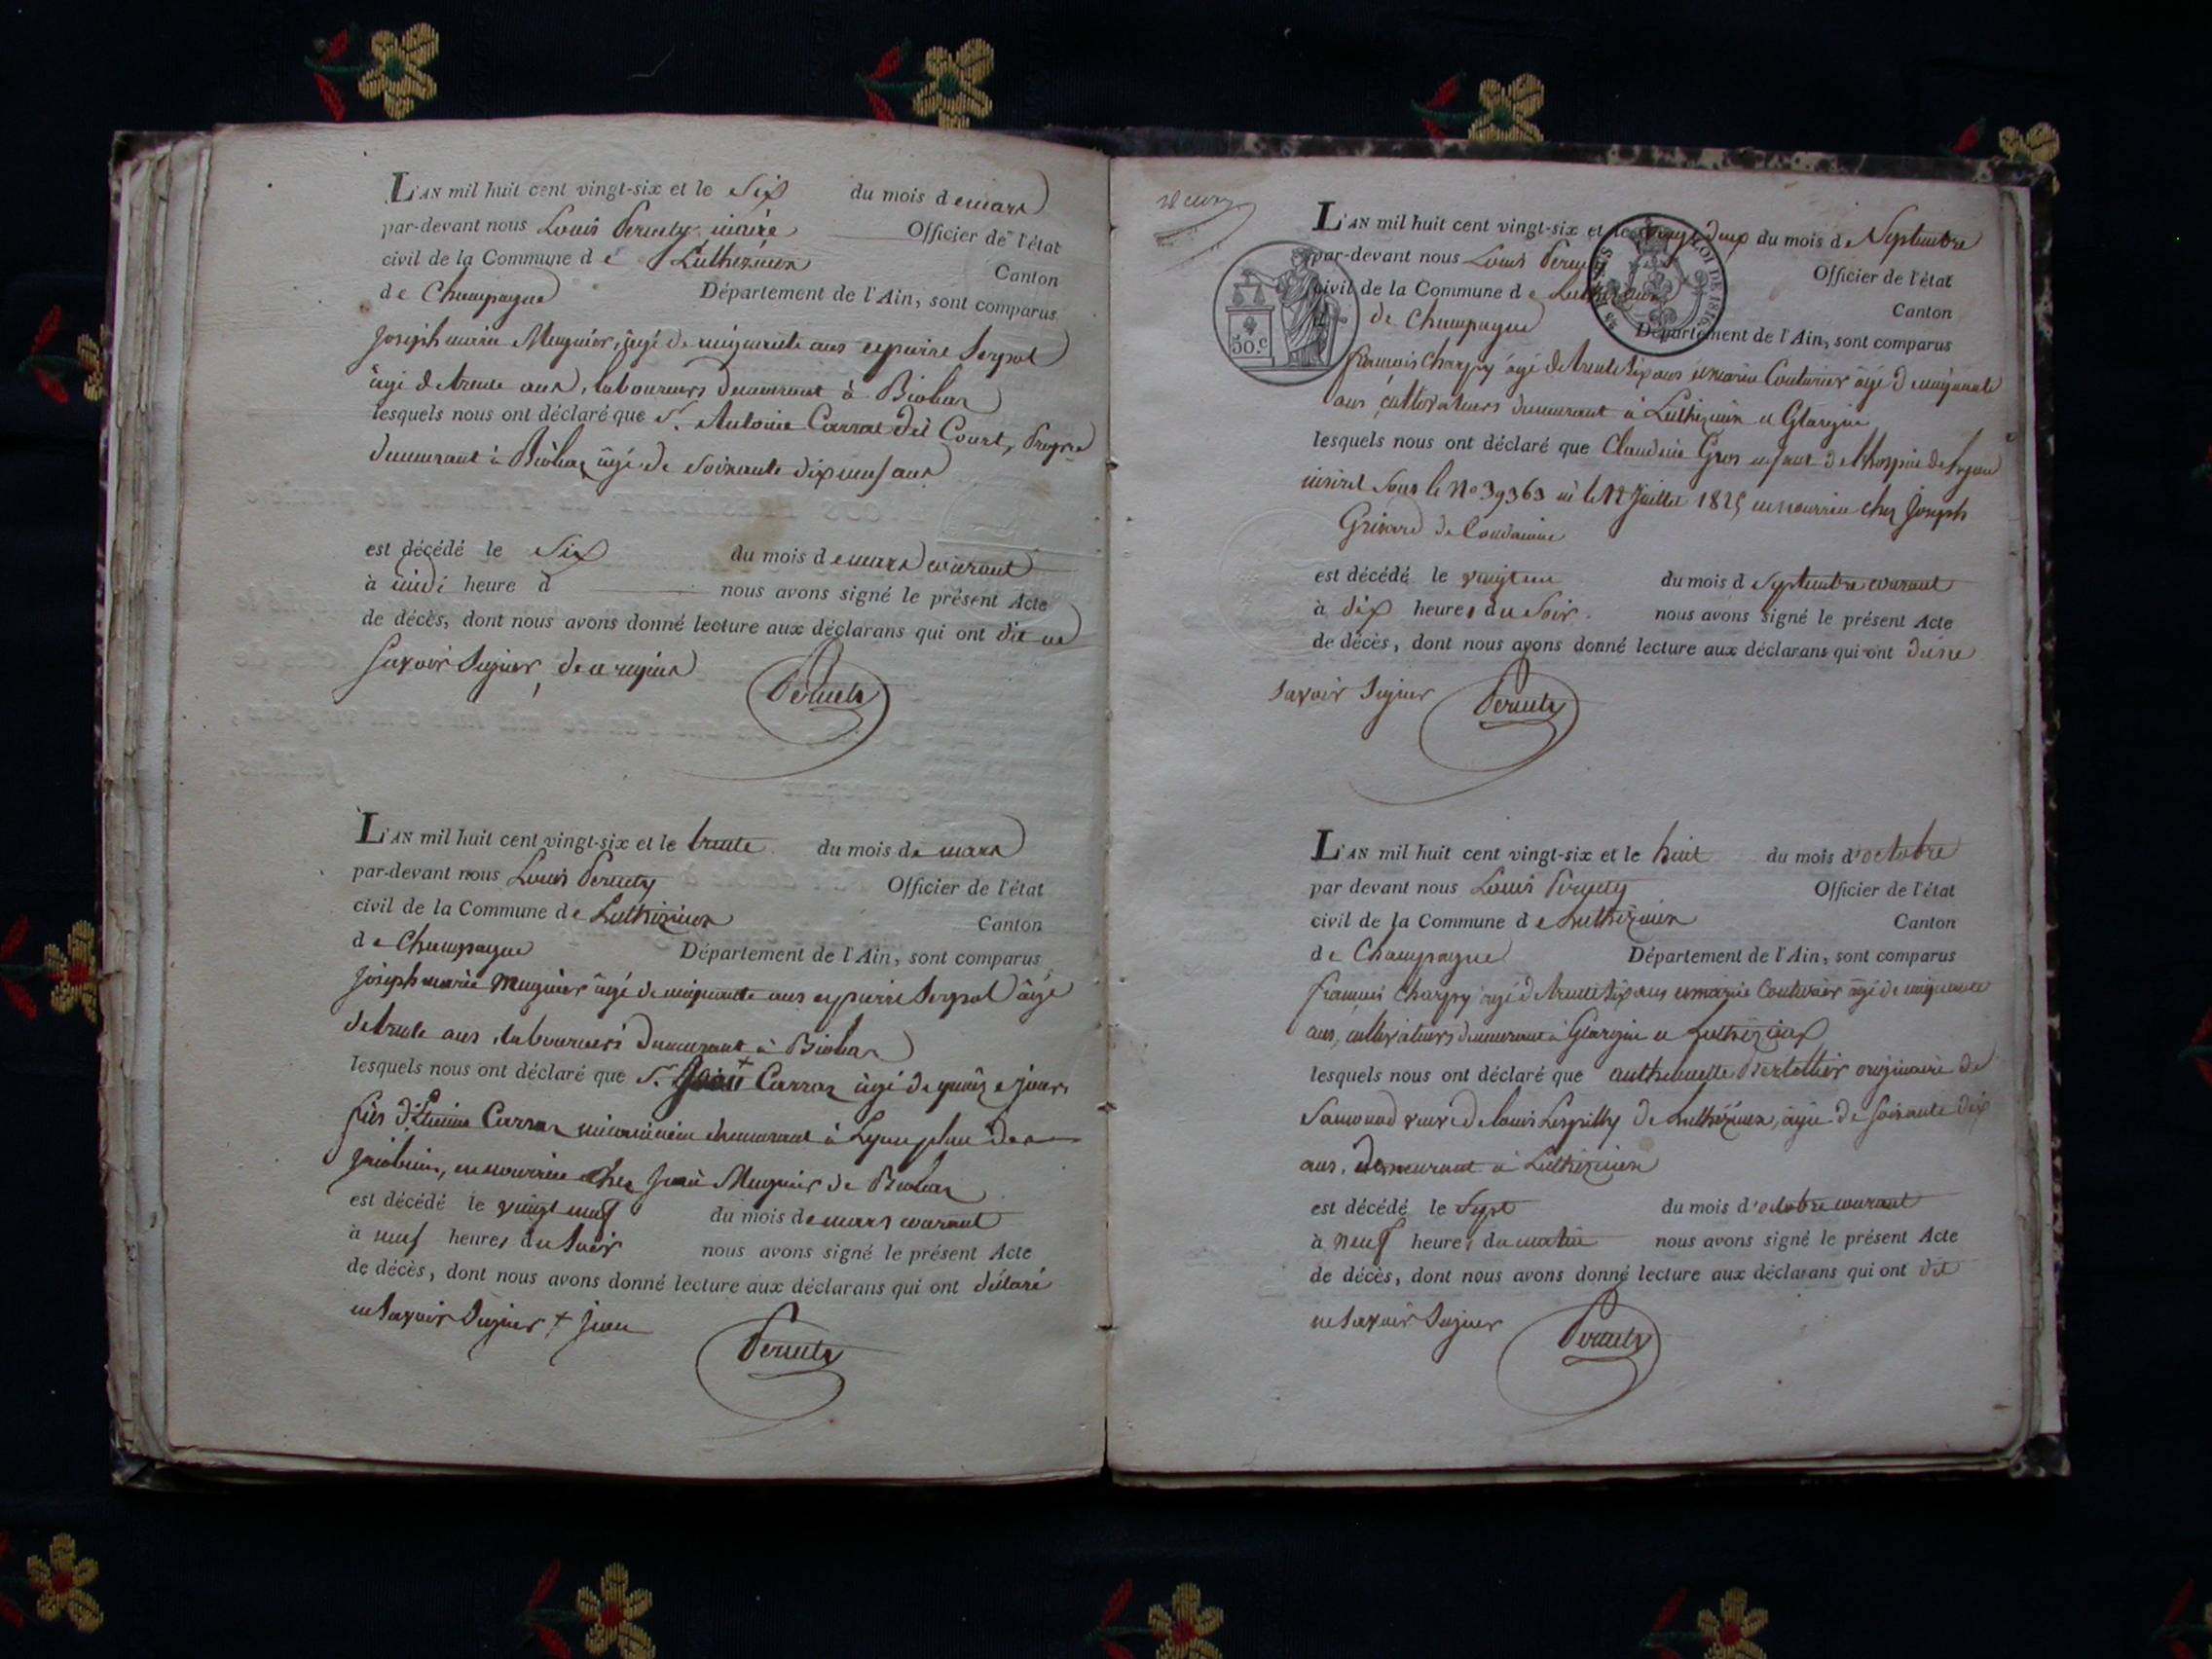 L'AN mil huit cent vingt-six et le Six du mois de mars
par-devant nous Louis Peruety, maire Officier de l'état
civil de la Commune de Luthezieux Canton
de Champagne Département de l'Ain, sont comparus
Joseph marie Mugnier, âgé de cinquante ans et pierre Serpol
âgé de trente ans, laboureurs demeurant à Biolaz
lesquels nous ont déclaré que Sr. Antoine Carraz dit Court, Propre
demeurant à Biolaz âgé de soixante dix neuf ans
est décédé le Six du mois de mars courant
à midi heure d nous avons signé le présent Acte
de décès, dont nous avons donné lecture aux déclarans qui ont dit ne
savoir signer, de ce requis
Peruety
L'AN mil huit cent vingt-six et le trente du mois de mars
par-devant nous Louis Peruety Officier de l'état
civil de la Commune de Luthezieux Canton
de Champagne Département de l'Ain, sont comparus
Joseph marie Mugnier âgé de cinquante ans et pierre Serpol âgé
de trente ans, laboureurs demeurant à Biolaz
lesquels nous ont déclaré que Sr. + Carraz âgé de quinze jours
fils d'Etienne Carraz demeurant à Lyon place des
Jacobins, en nourrice chez Mugnier de Biolaz
est décédé le vingt neuf du mois de mars courant
à neuf heures du soir nous avons signé le présent Acte
de décès, dont nous avons donné lecture aux déclarans qui ont déclaré
ne savoir signer + Jean
Peruety
50.c
LOI DE 1816
L'AN mil huit cent vingt-six et le vingt deux du mois de Septembre
par-devant nous Louis Peruety Officier de l'état
civil de la Commune de Luthezieux Canton
de Champagne Département de l'Ain, sont comparus
françois Charpy âgé de trente six ans et marin Couturier âgé de cinquante
ans, cultivateurs demeurant à Luthezieux et Glargin
lesquels nous ont déclaré que Claudine Gros enfant de l'hospice de Lyon
inscrit sous le No 39363 né le 12 Juillet 1825 en nourrice chez Joseph
de
est décédé le vingt un du mois de Septembre courant
à dix heures du soir. nous avons signé le présent Acte
de décès, dont nous avons donné lecture aux déclarans qui ont dit ne
savoir signer
Peruety
L'AN mil huit cent vingt-six et le huit du mois d'octobre
par devant nous Louis Peruety Officier de l'état
civil de la Commune de Luthezieux Canton
de Champagne Département de l'Ain, sont comparus
françois Charpy âgé de trente six ans et marin Couturier âgé de cinquante
ans, cultivateurs demeurant à Glargin et Luthezieux
lesquels nous ont déclaré que anthelmette Bertettier originaire de
Samonod veuve de louis de Luthezieux, âgée de soixante dix
ans, demeurant à Luthezieux
est décédé le Sept du mois d'octobre courant
à neuf heures du matin nous avons signé le présent Acte
de décès, dont nous avons donné lecture aux déclarans qui ont dit
ne savoir signer
Peruety